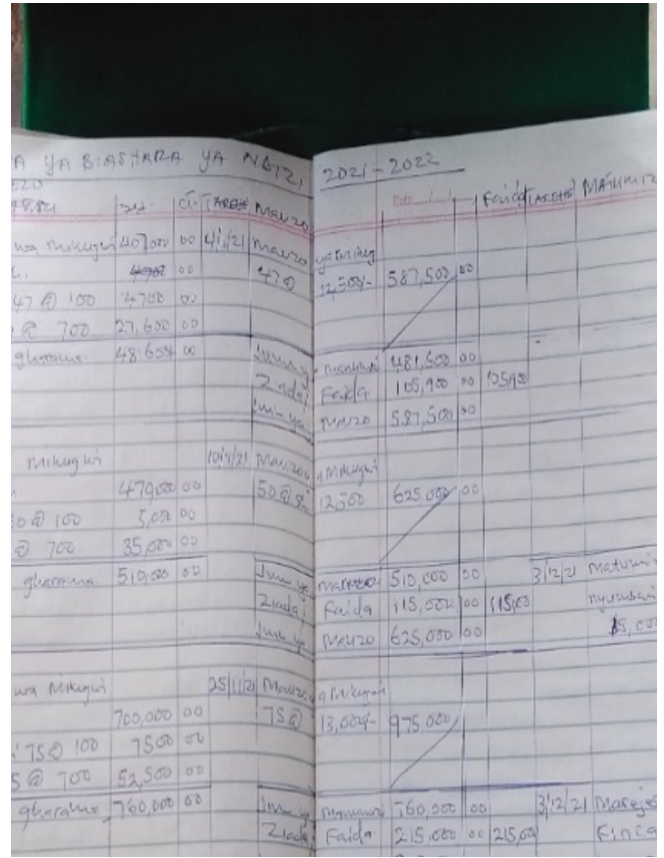 A YA BIASHARA YA NDIZI 2021 - 2022
Faida TAREHE MATUMIZI
TAREHE Mauzo
wa mikugwi 407,000 00 4/11/21 mauzo ya mikug
00 47@ 12,500/- 587,500 00
47 @ 100 4700 00
@ 700 27,600 00
gharama 00 Jumla ya manunuzi 481,600 00
Ziada/ Faida 105,900 00
Jumla ya Mauzo 587,500 00
mikugwi 10/11/21 Mauzo ya mikugwi
470,000 00 50@ 12,500 625,000 00
50 @ 100 5,000 00
@ 700 35,000 00
gharama 510,000 00 Jumla ya manunuzi 510,000 00 3/12/21 matumizi
Ziada/ Faida 115,000 00 115,000 nyumbani
Jumla ya Mauzo 625,000 00
wa mikugwi 25/11/21 Mauzo ya mikugwi
700,000 00 75@ 13,000/- 975,000
75@ 100 7500 00
@ 700 52,500 00
gharama 760,000 00 Jumla ya manunuzi 760,000 00 3/12/21 Marejes
Ziada/ Faida 215,000 00 215,000 Finca